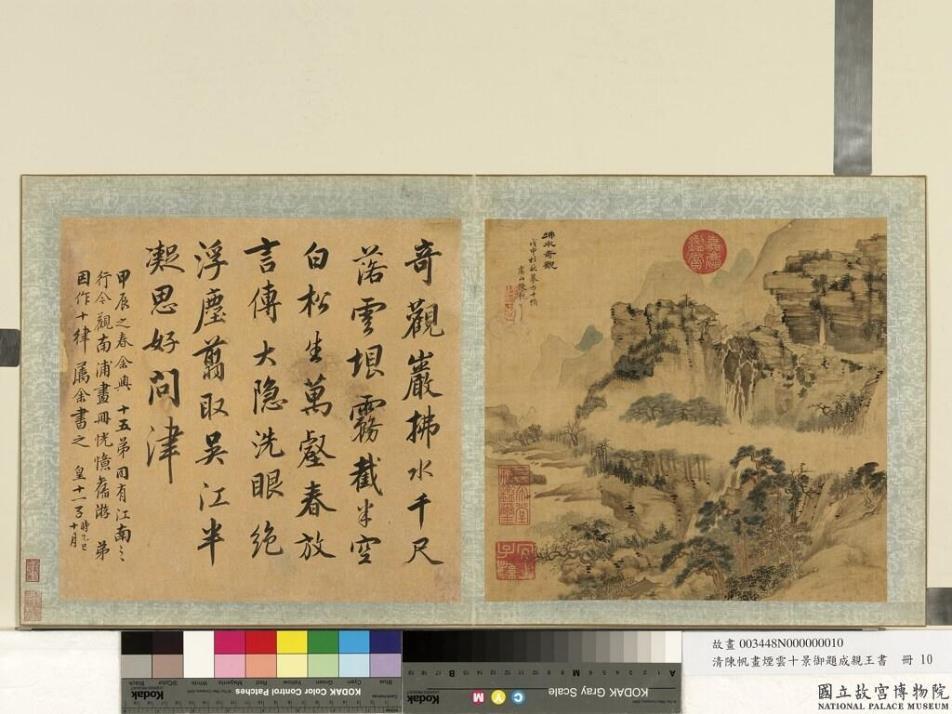 拂水奇觀
嘉慶鑑賞
三希堂精鑑璽
宜子孫
奇觀巖拂水千尺
落雲垠霧截半空
白松生萬壑春放
言傳大隱洗眼絕
浮塵翦取吳江半
凝思好問津
甲辰之春余與 十五弟同有江南之
行今觀南浦畫冊恍憶舊游 弟
因作十律屬余書之 皇十一子 時乙巳十月
Black 3/Color White Magenta Red Yellow Green Cyan Blue
KODAK Color Control Patches
KODAK Gray Scale
A M B C Y M
故畫 003448N000000010
清陳帆畫煙雲十景御題成親王書 冊 10
國立故宮博物院
NATIONAL PALACE MUSEUM